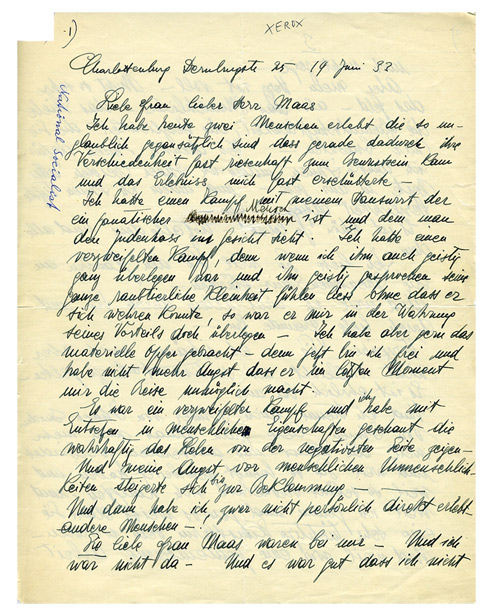 1)
XEROX
Charlottenburg Dernburgstr 25 19 Juni 33
National Socialist
Liebe Frau lieber Herr Maas
Ich habe heute zwei Menschen erlebt die so un-
glaublich gegensätzlich sind dass gerade dadurch ihre
Verschiedenheit fast riesenhaft zum Bewusstsein kam
und das Erlebniss mich fast erschütterte –
Ich hatte einen Kampf mit meinem Hauswirt der
ein fanatisches Mensch ist und dem man
den Judenhass ins Gesicht sieht. Ich hatte einen
verzweifelten Kampf, denn wenn ich ihm auch geistig
ganz überlegen war und ihm geistig gesprochen seine
ganze raubtierliche Kleinheit fühlen liess ohne dass er
sich wehren konnte, so war er mir in der Wahrung
seines Vorteils doch überlegen – Ich habe aber gern das
materielle Opfer gebracht – denn jetzt bin ich frei und
habe nicht mehr Angst dass er im letzten Moment
mir die Reise unmöglich macht.
Es war ein verzweifelter Kampf und ich habe mit
Entsetzen in menschliche Eigenschaften geschaut die
wahrhaftig das Leben von der negativsten Seite zeigen –
Und meine Angst vor menschlichen Unmenschlich-
keiten steigerte sich bis zur Beklemmung –
Und dann habe ich zwar nicht persönlich direkt erlebt
andere Menschen – !
Sie liebe Frau Maas waren bei mir – Und ich
war nicht da – Und es war gut dass ich nicht